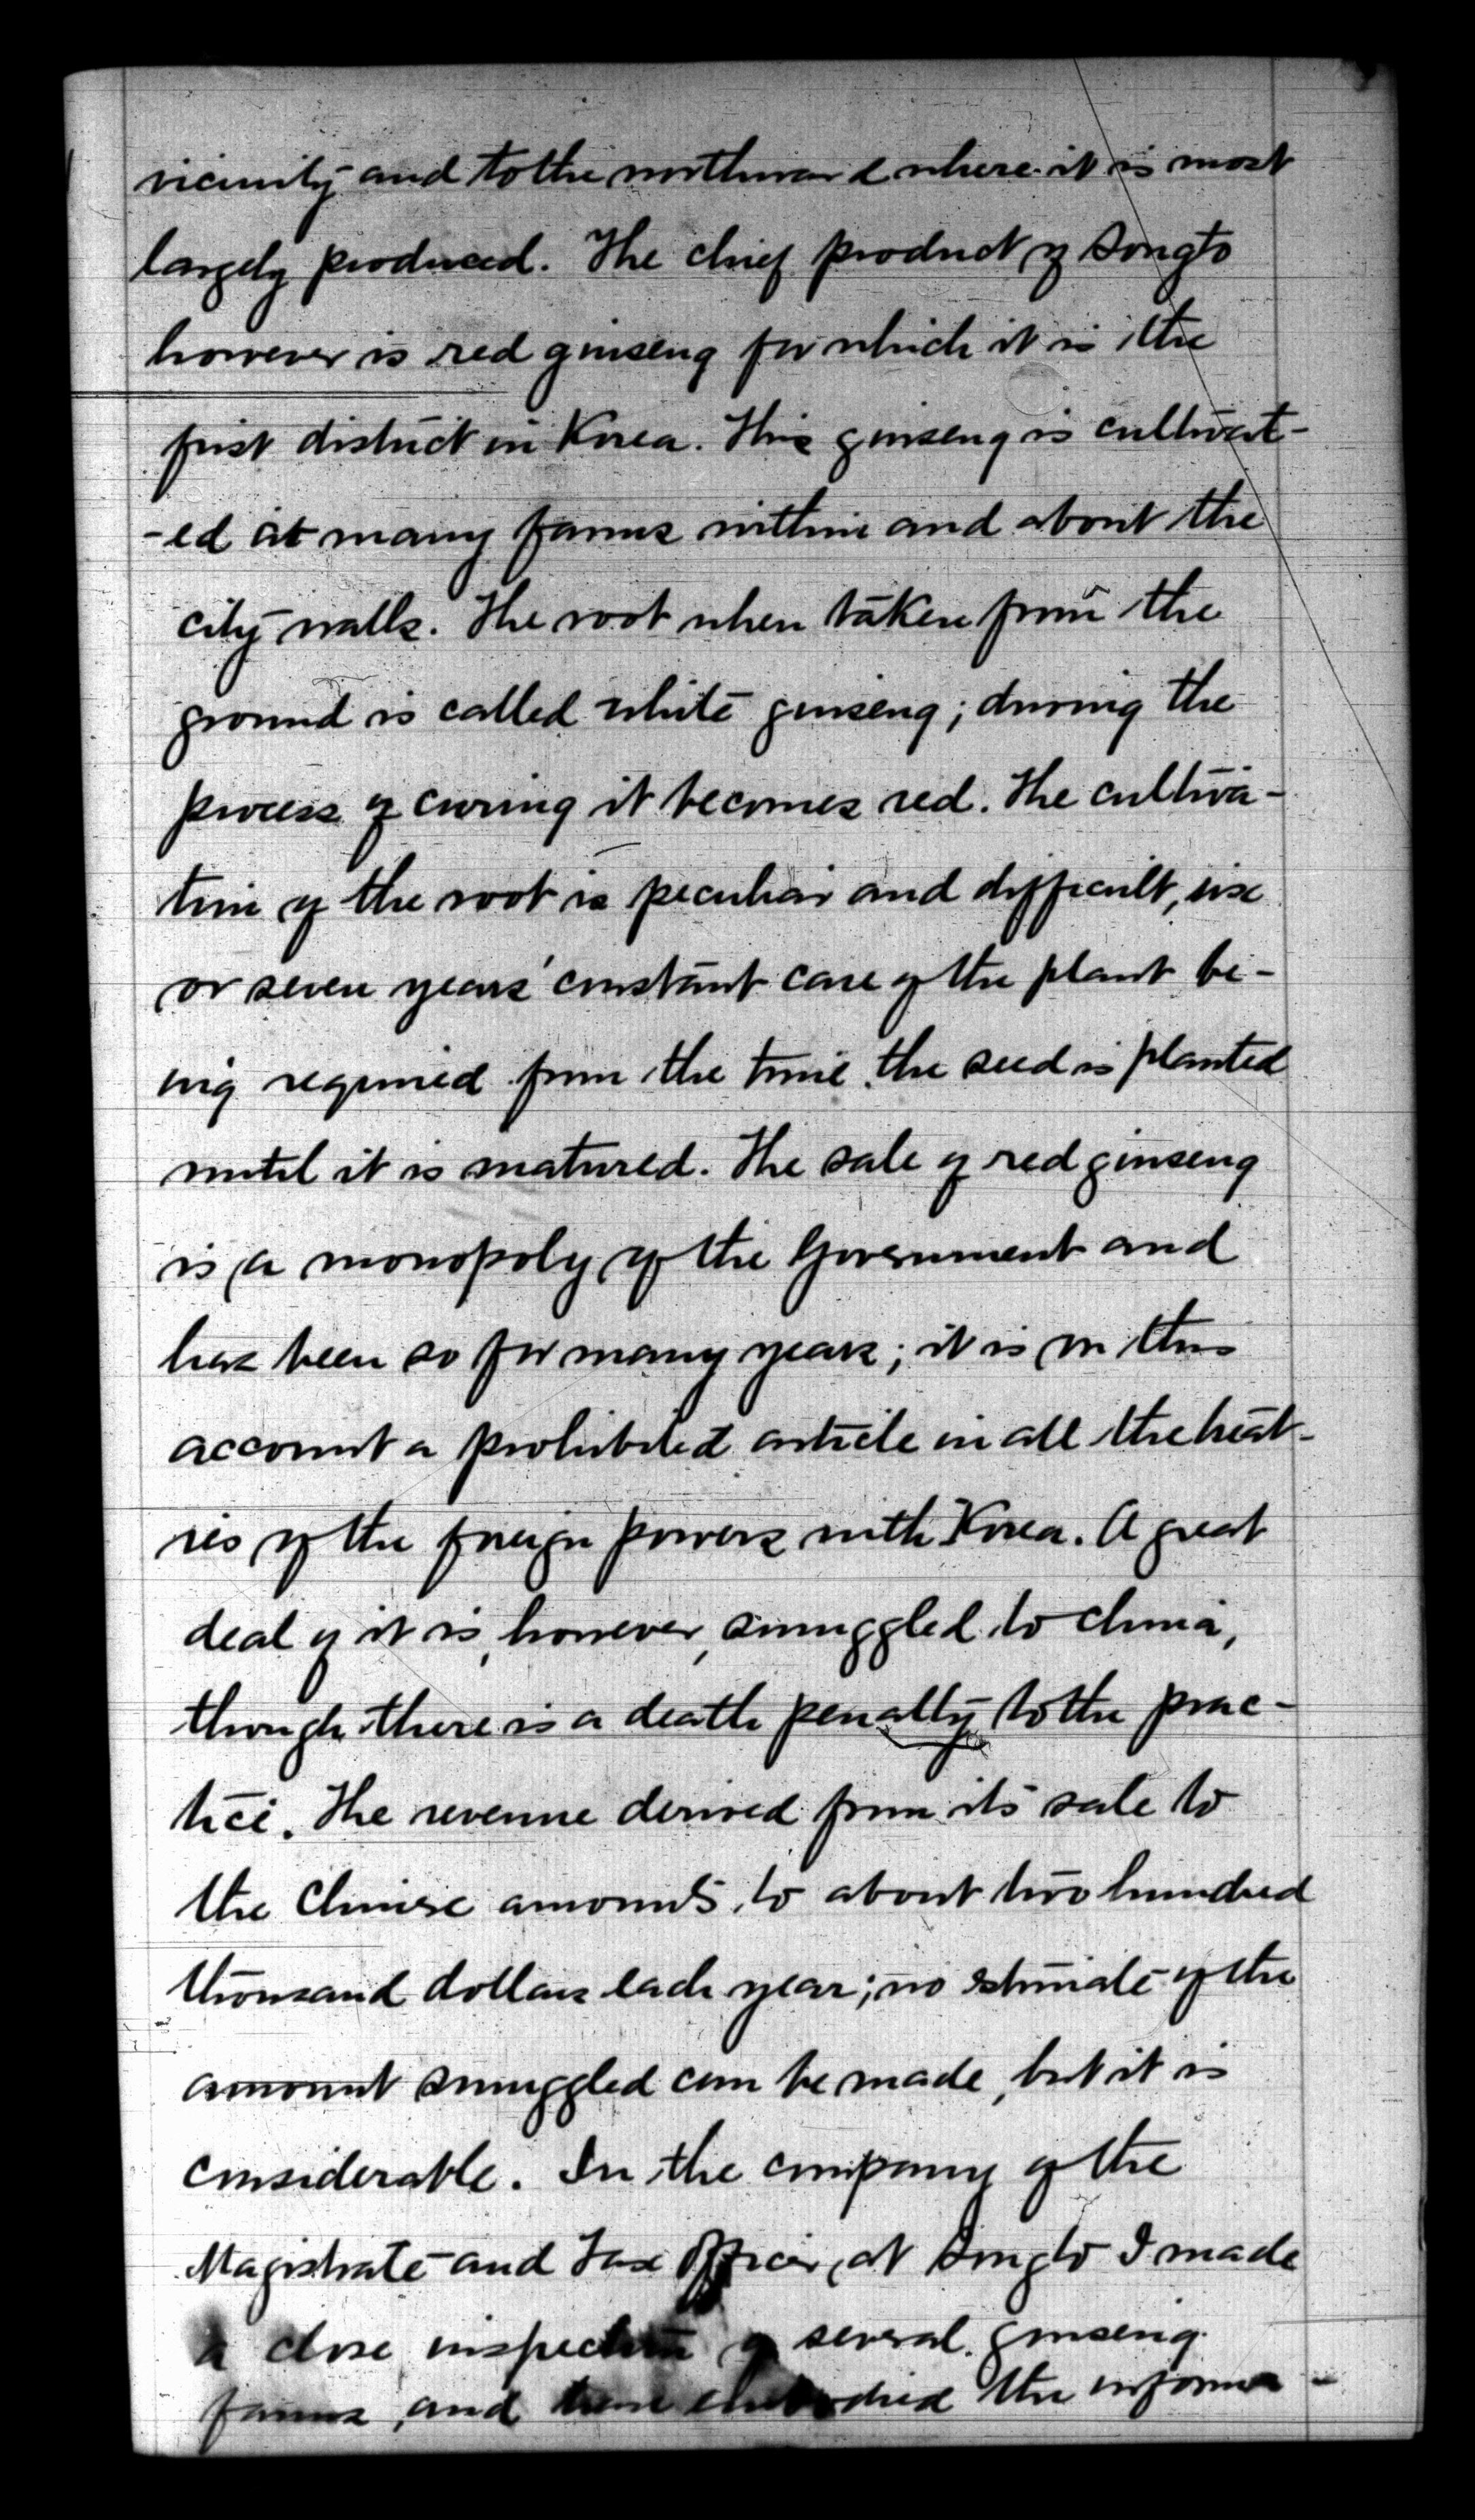 vicinity and to the northward where it is most
largely produced. The chief product of Songto
however is red ginseng for which it is the
first district in Korea. This ginseng is cultivat-
-ed at many farms within and about the
city walls. The root when taken from the
ground is called white ginseng; during the
process of curing it becomes red. The cultiva-
tion of the root is peculiar and difficult, six
or seven years' constant care of the plant be-
ing required from the time the seed is planted
until it is matured. The sale of red ginseng
is a monopoly of the Government and
has been so for many years; it is on this
account a prohibited article in all the treat-
ies of the foreign powers with Korea. A great
deal of it is, however, smuggled to China,
though there is a death penalty to the prac-
tice. The revenue derived from its sale to
the Chinese amounts to about two hundred
thousand dollars each year; no estimate of the
amount smuggled can be made, but it is
considerable. In the company of the
Magistrate and Tax Officer, at Songto I made
a close inspection of several ginseng
farms, and have embodied the informa-